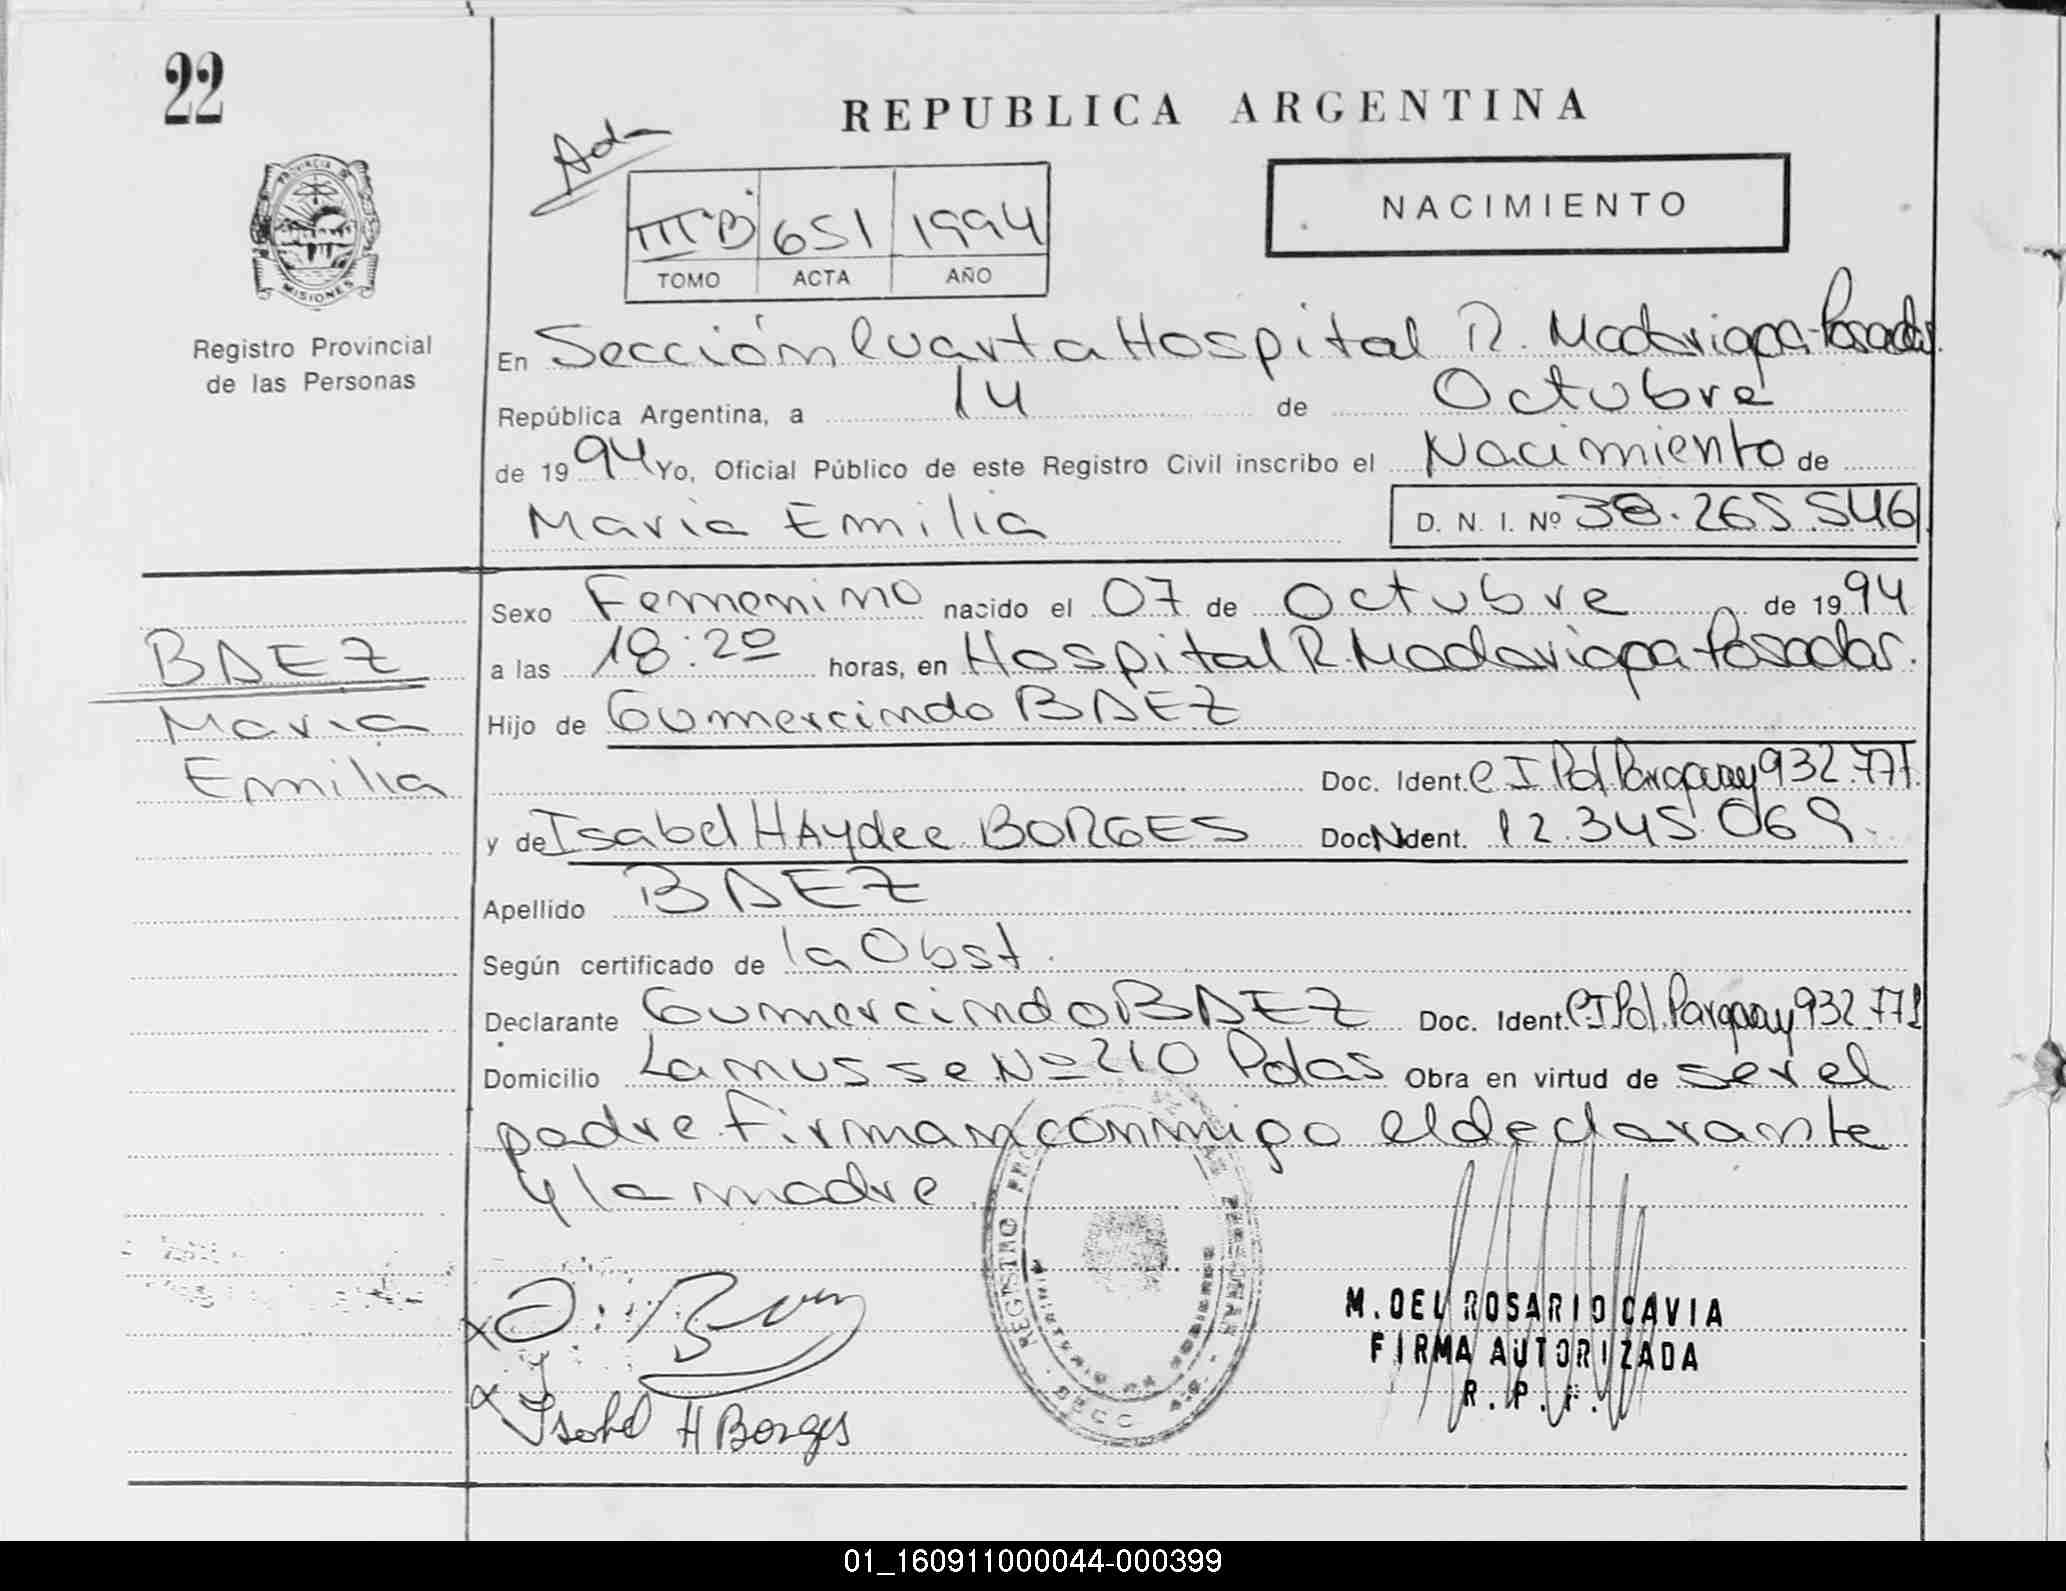 22
REPUBLICA ARGENTINA
PROVINCIA DE
MISIONES
Registro Provincial
de las Personas
III°B 651 1994
TOMO ACTA AÑO
NACIMIENTO
En Sección Cuarta Hospital R. Madariaga-Posadas.
República Argentina, a 14 de Octubre
de 1994 Yo, Oficial Público de este Registro Civil inscribo el Nacimiento de
Maria Emilia D. N. I. Nº 38.265.546
BAEZ
Maria
Emilia
Sexo Femenino nacido el 07 de Octubre de 1994
a las 18:20 horas, en Hospital R. Madariaga-Posadas.
Hijo de Gumercindo BAEZ
Doc. Ident. C I Pol. Paraguay 932.771.
y de Isabel HAydee BORGES Doc N Ident. 12.345.069.
Apellido BAEZ
Según certificado de la Obst.
Declarante Gumercindo BAEZ Doc. Ident. C I Pol. Paraguay 932.771
Domicilio Lamusse Nº 210 Pdas Obra en virtud de ser el
padre firman conmigo el declarante
y la madre.
M. DEL ROSARIO CAVIA
FIRMA AUTORIZADA
R. P. P.
Isabel H Borges
01_160911000044-000399